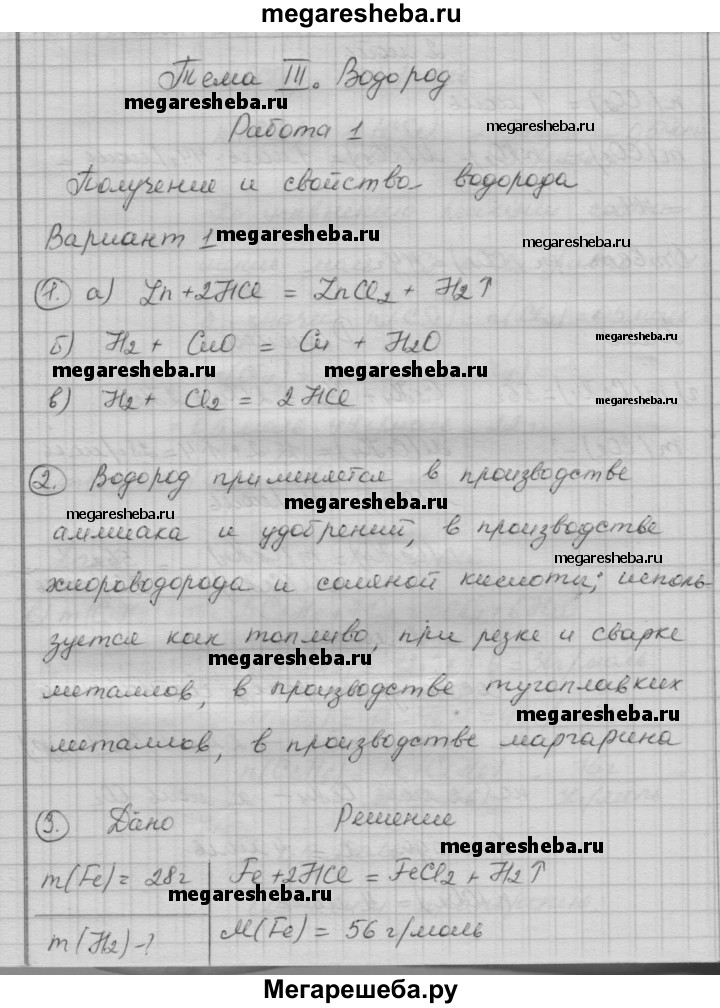 megaresheba.ru
Тема III. Водород
megaresheba.ru
Работа 1
megaresheba.ru
Получение и свойства водорода
Вариант 1
megaresheba.ru
megaresheba.ru
1. а) Zn + 2HCl = ZnCl2 + H2↑
б) H2 + CuO = Cu + H2O
megaresheba.ru
megaresheba.ru
megaresheba.ru
в) H2 + Cl2 = 2HCl
megaresheba.ru
2. Водород применяется в производстве
megaresheba.ru
megaresheba.ru
аммиака и удобрений, в производстве
megaresheba.ru
хлороводорода и соляной кислоты; исполь-
зуется как топливо, при резке и сварке
megaresheba.ru
металлов, в производстве тугоплавких
megaresheba.ru
металлов, в производстве маргарина
3. Дано Решение
megaresheba.ru
m(Fe) = 28г Fe + 2HCl = FeCl2 + H2↑
m(H2) - ? M(Fe) = 56 г/моль
Мегарешеба.ру